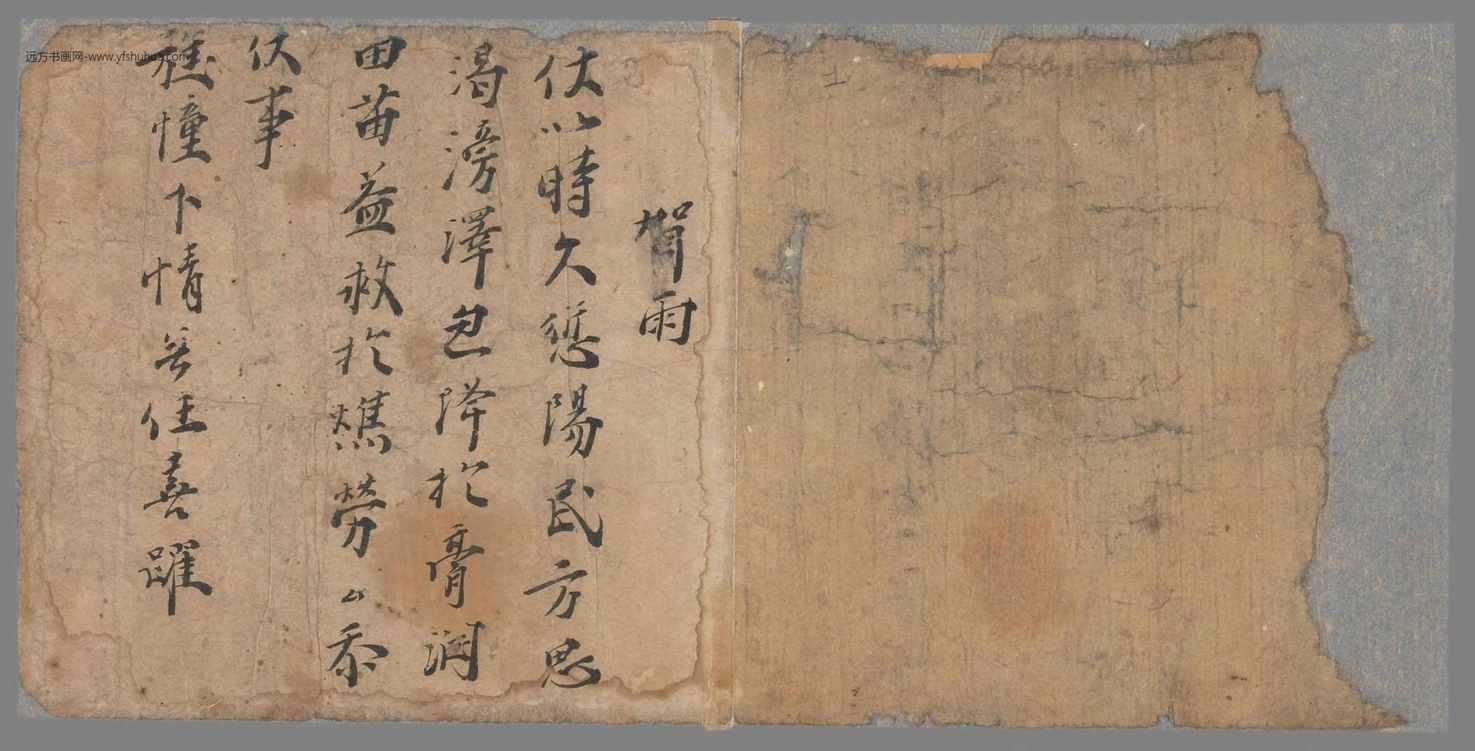 賀雨
伏以時久愆陽民方思
渴滂澤忽降於膏潤
田苗益救於燋勞厶忝
伏事
旌幢下情無任喜躍
远方书画网-www.yfshuhua.com